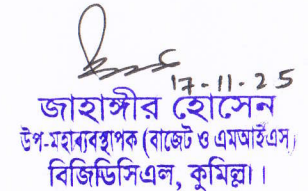 17-11-25
জাহাঙ্গীর হোসেন
উপ-মহাব্যবস্থাপক (বাজেট ও এমআইএস)
বিজিডিসিএল, কুমিল্লা।